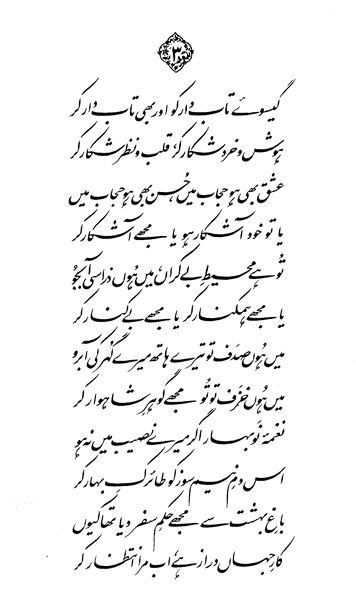 ۳
گیسوئے تاب دار کو اور بھی تاب دار کر
ہوش و خرد شکار کر، قلب و نظر شکار کر
عشق بھی ہو حجاب میں حُسن بھی ہو حجاب میں
یا تو خود آشکار ہو یا مجھے آشکار کر
تُو ہے محیطِ بے کراں میں ہُوں ذرا سی آبجُو
یا مجھے ہمکنار کر یا مجھے بے کنار کر
میں ہُوں صدف تو تیرے ہاتھ میرے گُہر کی آبرو
میں ہُوں خزف تو تُو مجھے گوہرِ شاہوار کر
نغمۂ نَو بہار اگر میرے نصیب میں نہ ہو
اس دمِ نیم سوز کو طائرکِ بہار کر
باغِ بہشت سے مجھے حکمِ سفر دیا تھا کیوں
کارِ جہاں دراز ہے اب مرا انتظار کر